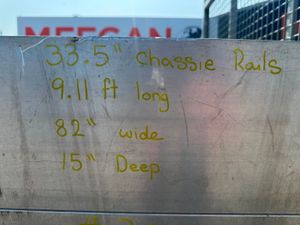 MEEGAN
33.5" Chassie Rails
9.11 ft long
82" wide
15" Deep